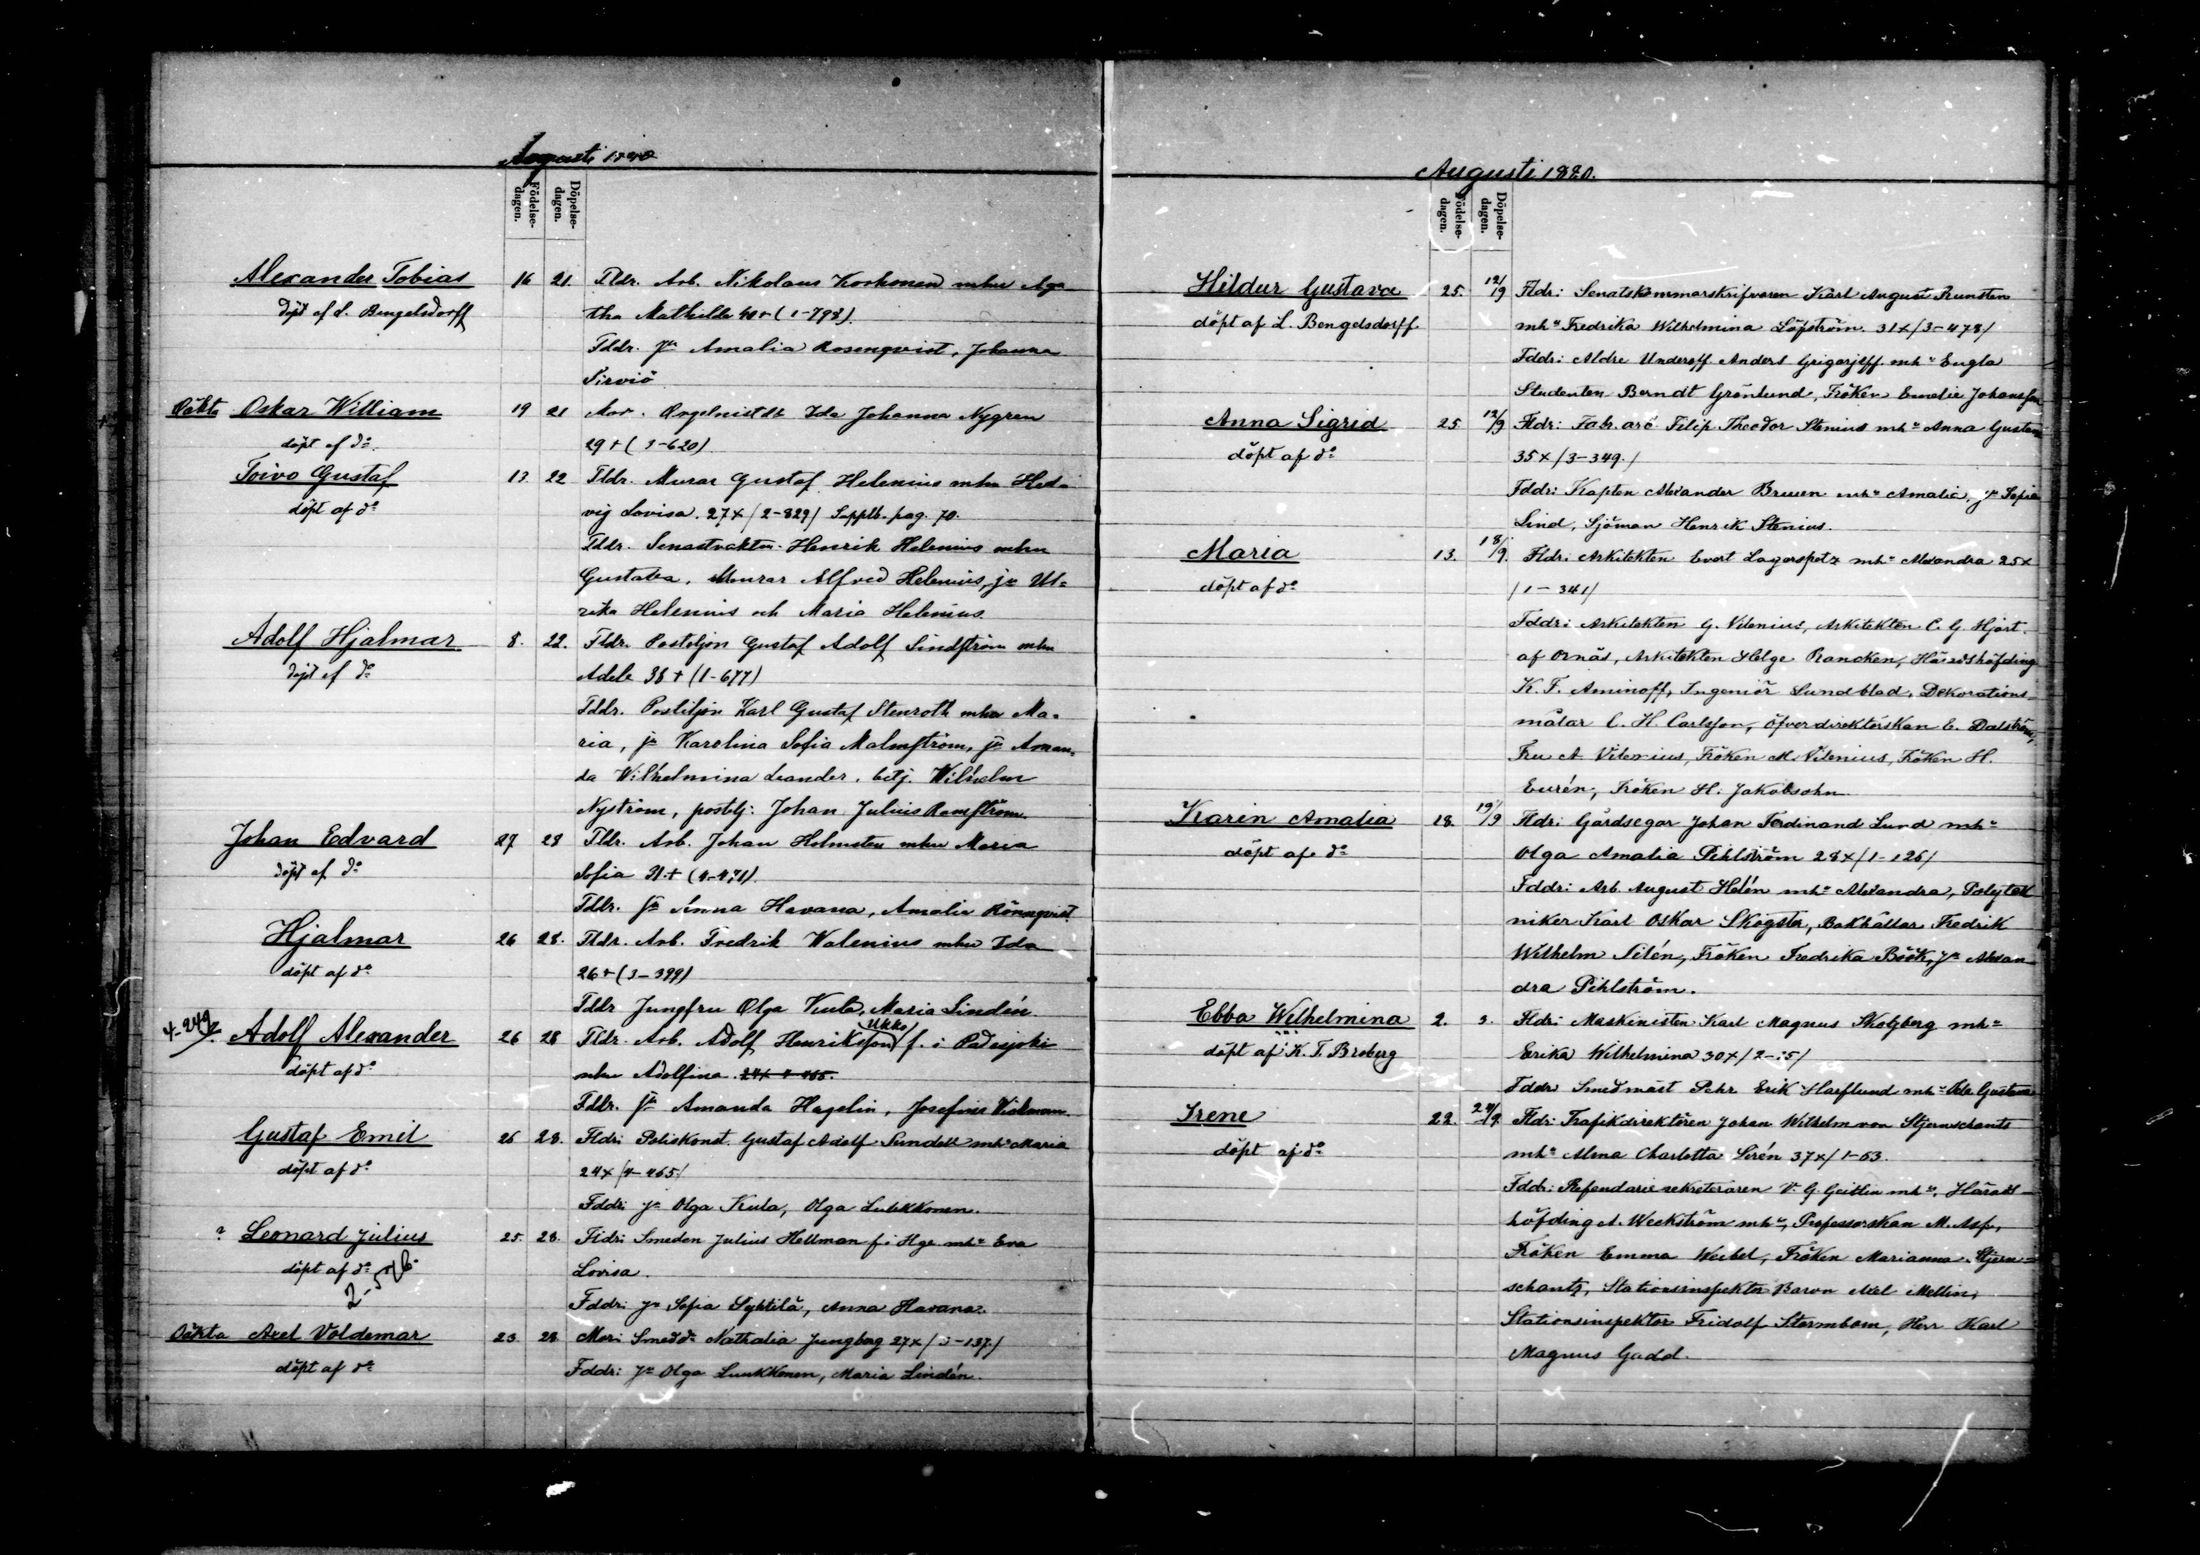 Augusti 1890
Födelse-
dagen.
Döpelse-
dagen.
Alexander Tobias 16 21. Fldr. Arb. Nikolaus Korhonen mhu Aga
döpt af L. Bengelsdorff tha Mathilda 40+ (1-798).
Fddr. Jfr Amalia Rosenqvist, Johanna
Sirviö
Oäkta Oskar William 19 21 Ida Johanna Nygren
döpt af do. 29+ (3-620)
Toivo Gustaf 13 22 Fldr. Murar Gustaf Helenius mhu Hed-
döpt af do vig Lovisa. 27x/2-829/ Supplb. pag. 70.
Fddr. Henrik Helenius mhu
Gustava, Murar Alfred Helenius, jfr Ul-
rika Helenius och Maria Helenius.
Adolf Hjalmar 8. 22. Fldr. Postiljon Gustaf Adolf Lindström mhu
döpt af do Adele 38+ (1-677)
Fddr. Postiljon Karl Gustaf Stenroth mhu Ma-
ria, jfr Karolina Sofia Malmström, jfr Aman-
da Wilhelmina Leander, betj. Wilhelm
Nyström, postilj: Johan Julius Ramström.
Johan Edvard 27 28 Fldr. Arb. Johan Holmsten mhu Maria
döpt af do Sofia 31+ (4-471).
Fddr. Jfr Anna Havana, Amalia Rönnqvist
Hjalmar 26 28. Fldr. Arb. Fredrik Valenius mhu Ida
döpt af do 26+ (3-399)
Fddr Jungfru Olga Kula, Maria Lindén.
4-249 Ukko
Adolf Alexander 26 28 Fldr. Arb. Adolf Henriksson f. i Padasjoki
döpt af do mhu Adolfina. 24x 4-465.
Fddr. Jfr Amanda Hagelin, Josefina Vickman.
Gustaf Emil 26 28. Fldr: Poliskonst. Gustaf Adolf Sundell mhu Maria
döpt af do 24x/4-465/
Fddr: jfr Olga Kula, Olga Lukkonen.
? Leonard Julius 25. 28. Fldr: Smeden Julius Hellman f. i Hge mhu Eva
döpt af do Lovisa.
2-546. Fddr: jfr Sofia Syhtilä, Anna Havana.
Oäkta Axel Voldemar 23 28 Mor: Smedd: Nathalia Ljungberg 27x/3-137/
döpt af do Fddr: Jfr Olga Luukkonen, Maria Lindén.
Augusti 1890.
Födelse-
dagen.
Döpelse-
dagen.
Hildur Gustava 25. 12/9 Fldr: Senatskammarskrifvaren Karl August Runsten
döpt af L. Bengelsdorff mhu Fredrika Wilhelmina Löfström. 31x/3-478/
Fddr: Äldre Underoff. Anders Grigorjeff mhu Engla
Studenten Berndt Grönlund, Fröken Emelie Johansson
Anna Sigrid 25 12/9 Fldr: Fab. arb Filip Theodor Stenius mhu Anna Gustava
döpt af do 35x/3-349./
Fddr: Kapten Alexander Bruun mhu Amalia, jfr Sofia
Lind, Sjöman Henrik Stenius.
Maria 13. 18/9. Fldr: Arkitekten Evert Lagerspetz mhu Alexandra 25x
döpt af do /1-341/
Fddr: Arkitekten G. Vilenius, Arkitekten C. G. Hjort
af Ornäs, Arkitekten Helge Rancken, Häradshöfding
K. F. Aminoff, Ingeniör Lundblad, Dekorations-
målar C. H. Carlsson, Öfverdirektörskan E. Dalström,
Fru A Vilenius, Fröken M. Vilenius, Fröken H.
Eurén, Fröken H. Jakobsohn.
Karin Amalia 18. 19/9 Fldr: Gårdsegar Johan Ferdinand Lund mhu
döpt af do Olga Amalia Pihlström 28x/1-126/
Fddr: Arb. August Helén mhu Alexandra, Polytek
niker Karl Oskar Skogster, Bokhållar Fredrik
Wilhelm Silén, Fröken Fredrika Böök, jfr Alexan
dra Pihlström.
Ebba Wilhelmina 2. 3. Fldr: Maskinisten Karl Magnus Skogberg mhu
döpt af K. T. Broberg Erika Wilhelmina 30x/2-15/
Fddr Smedmäst Pehr Erik Haeflund mhu Gustava
Irene 22. 24/9 Fldr: Trafikdirektören Johan Wilhelm von Stjernschantz
döpt af do mhu Alma Charlotta Sirén 37x/1-63.
Fddr: Referendariesekreteraren V. G. Geitlin mhu, Härads-
höfding A. Weckström mhu, Professorskan M. Asp,
Fröken Emma Weibel, Fröken Marianna Stjern-
schantz, Stationsinspektor Baron Axel Mellin,
Stationsinspektor Fridolf Stormbom, Herr Karl
Magnus Gadd.